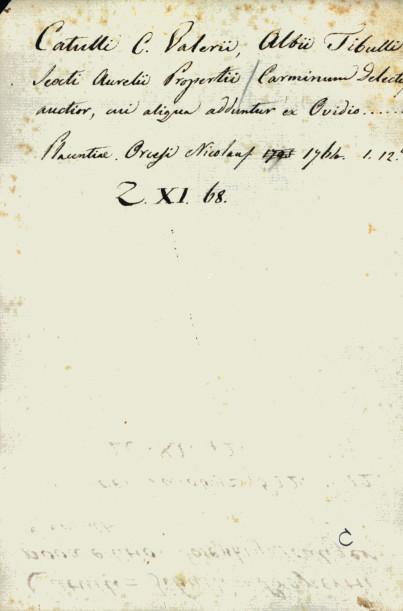 Catulli C. Valerii, Albii Tibulli
Sexti Aurelii Propertii Carminum Delect
auctior, cui aliqua adduntur ex Ovidio......
Placentiae. Orcesi Nicolaus 1764. 1. 12.º
Z. XI. 68.
C